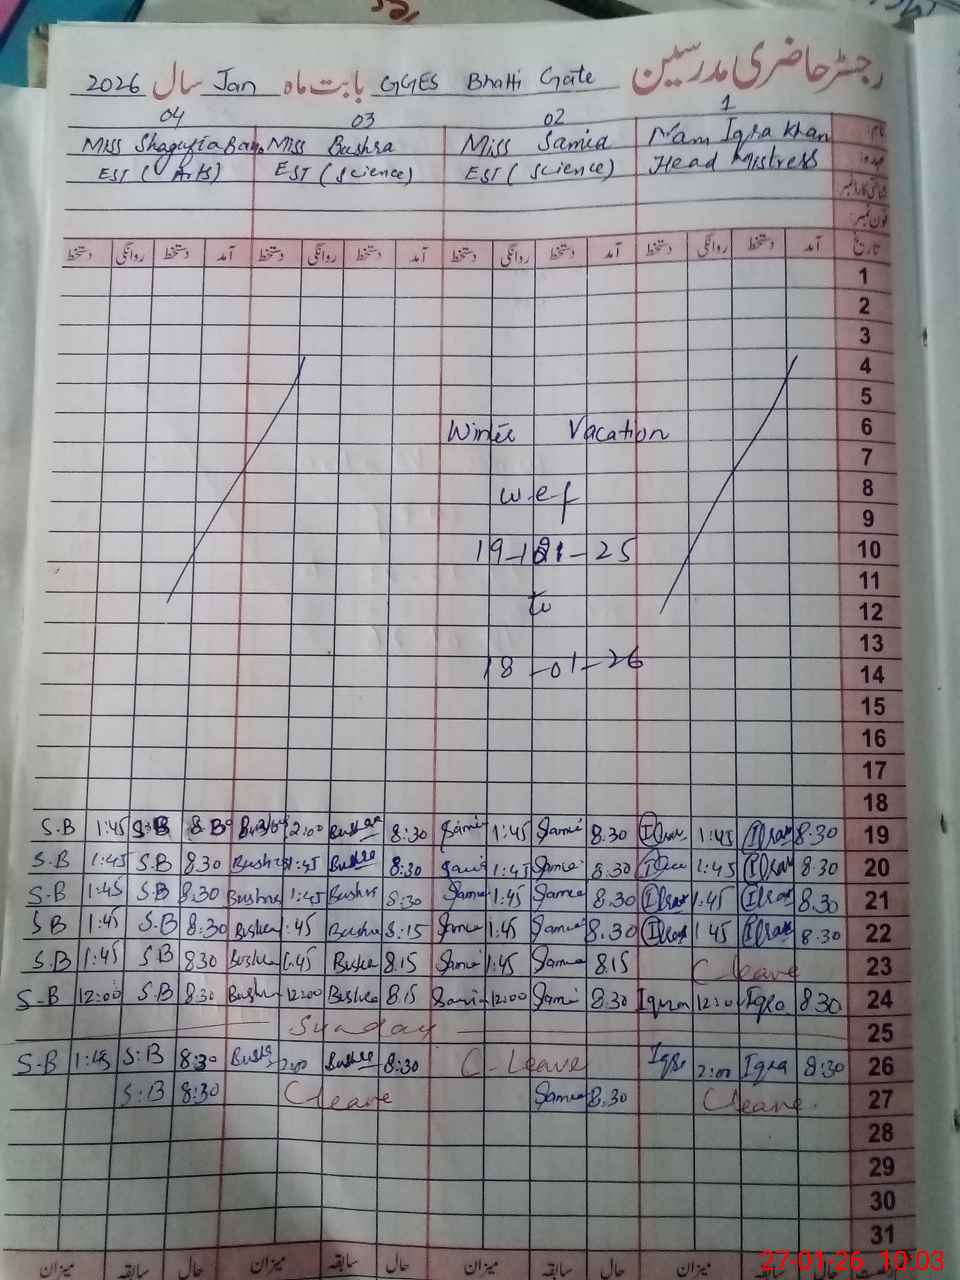 رجسٹر حاضری مدرسین GGES Bhatti Gate بابت ماہ Jan سال 2026
04 03 02 1
Miss Shagufta Miss Bushra Miss Samia Mam Iqra Khan
EST (Arts) EST (Science) EST (Science) Head Mistress
فون نمبر:
تاریخ آمد دستخط روانگی دستخط آمد دستخط روانگی دستخط آمد دستخط روانگی دستخط آمد دستخط روانگی دستخط
1
2
3
4
5
6
Winter Vacation
7
8
w.e.f
9
10
11
12
to
13
14
18-01-26
15
16
17
18
S.B 1:45 2:00 8:30 1:45 8.30 1:45 8:30 19
S.B 1:45 S.B 8.30 Bushra 1:45 8:30 1:45 Samia 8.30 1:45 8:30 20
S.B 1:45 S.B 8.30 Bushra 1:45 Bushra 8:30 Samia 1:45 Samia 8.30 1:45 8.30 21
S B 1:45 S.B 8:30 Bushra 1:45 Bushra 8:15 Samia 1:45 Samia 8.30 1 45 8.30 22
S.B 1:45 S.B 830 Bushra 1:45 Bushra 8.15 Samia 1:45 Samia 8.15 C leave 23
S-B 12:00 S.B 8:30 Bushra 12:00 Bushra 8.15 Sami 12:00 Sami 8.30 Iqra 12:00 Iqra 8.30 24
Sunday 25
S-B 1:45 S:B 8:30 2:00 Bushra 8:30 C-Leave Iqra 2:00 Iqra 8:30 26
S:B 8:30 C leave Samia 8.30 C leave. 27
28
29
30
31
حال سابقہ میزان حال سابقہ میزان حال سابقہ میزان حال سابقہ میزان
27-01-26 10:03